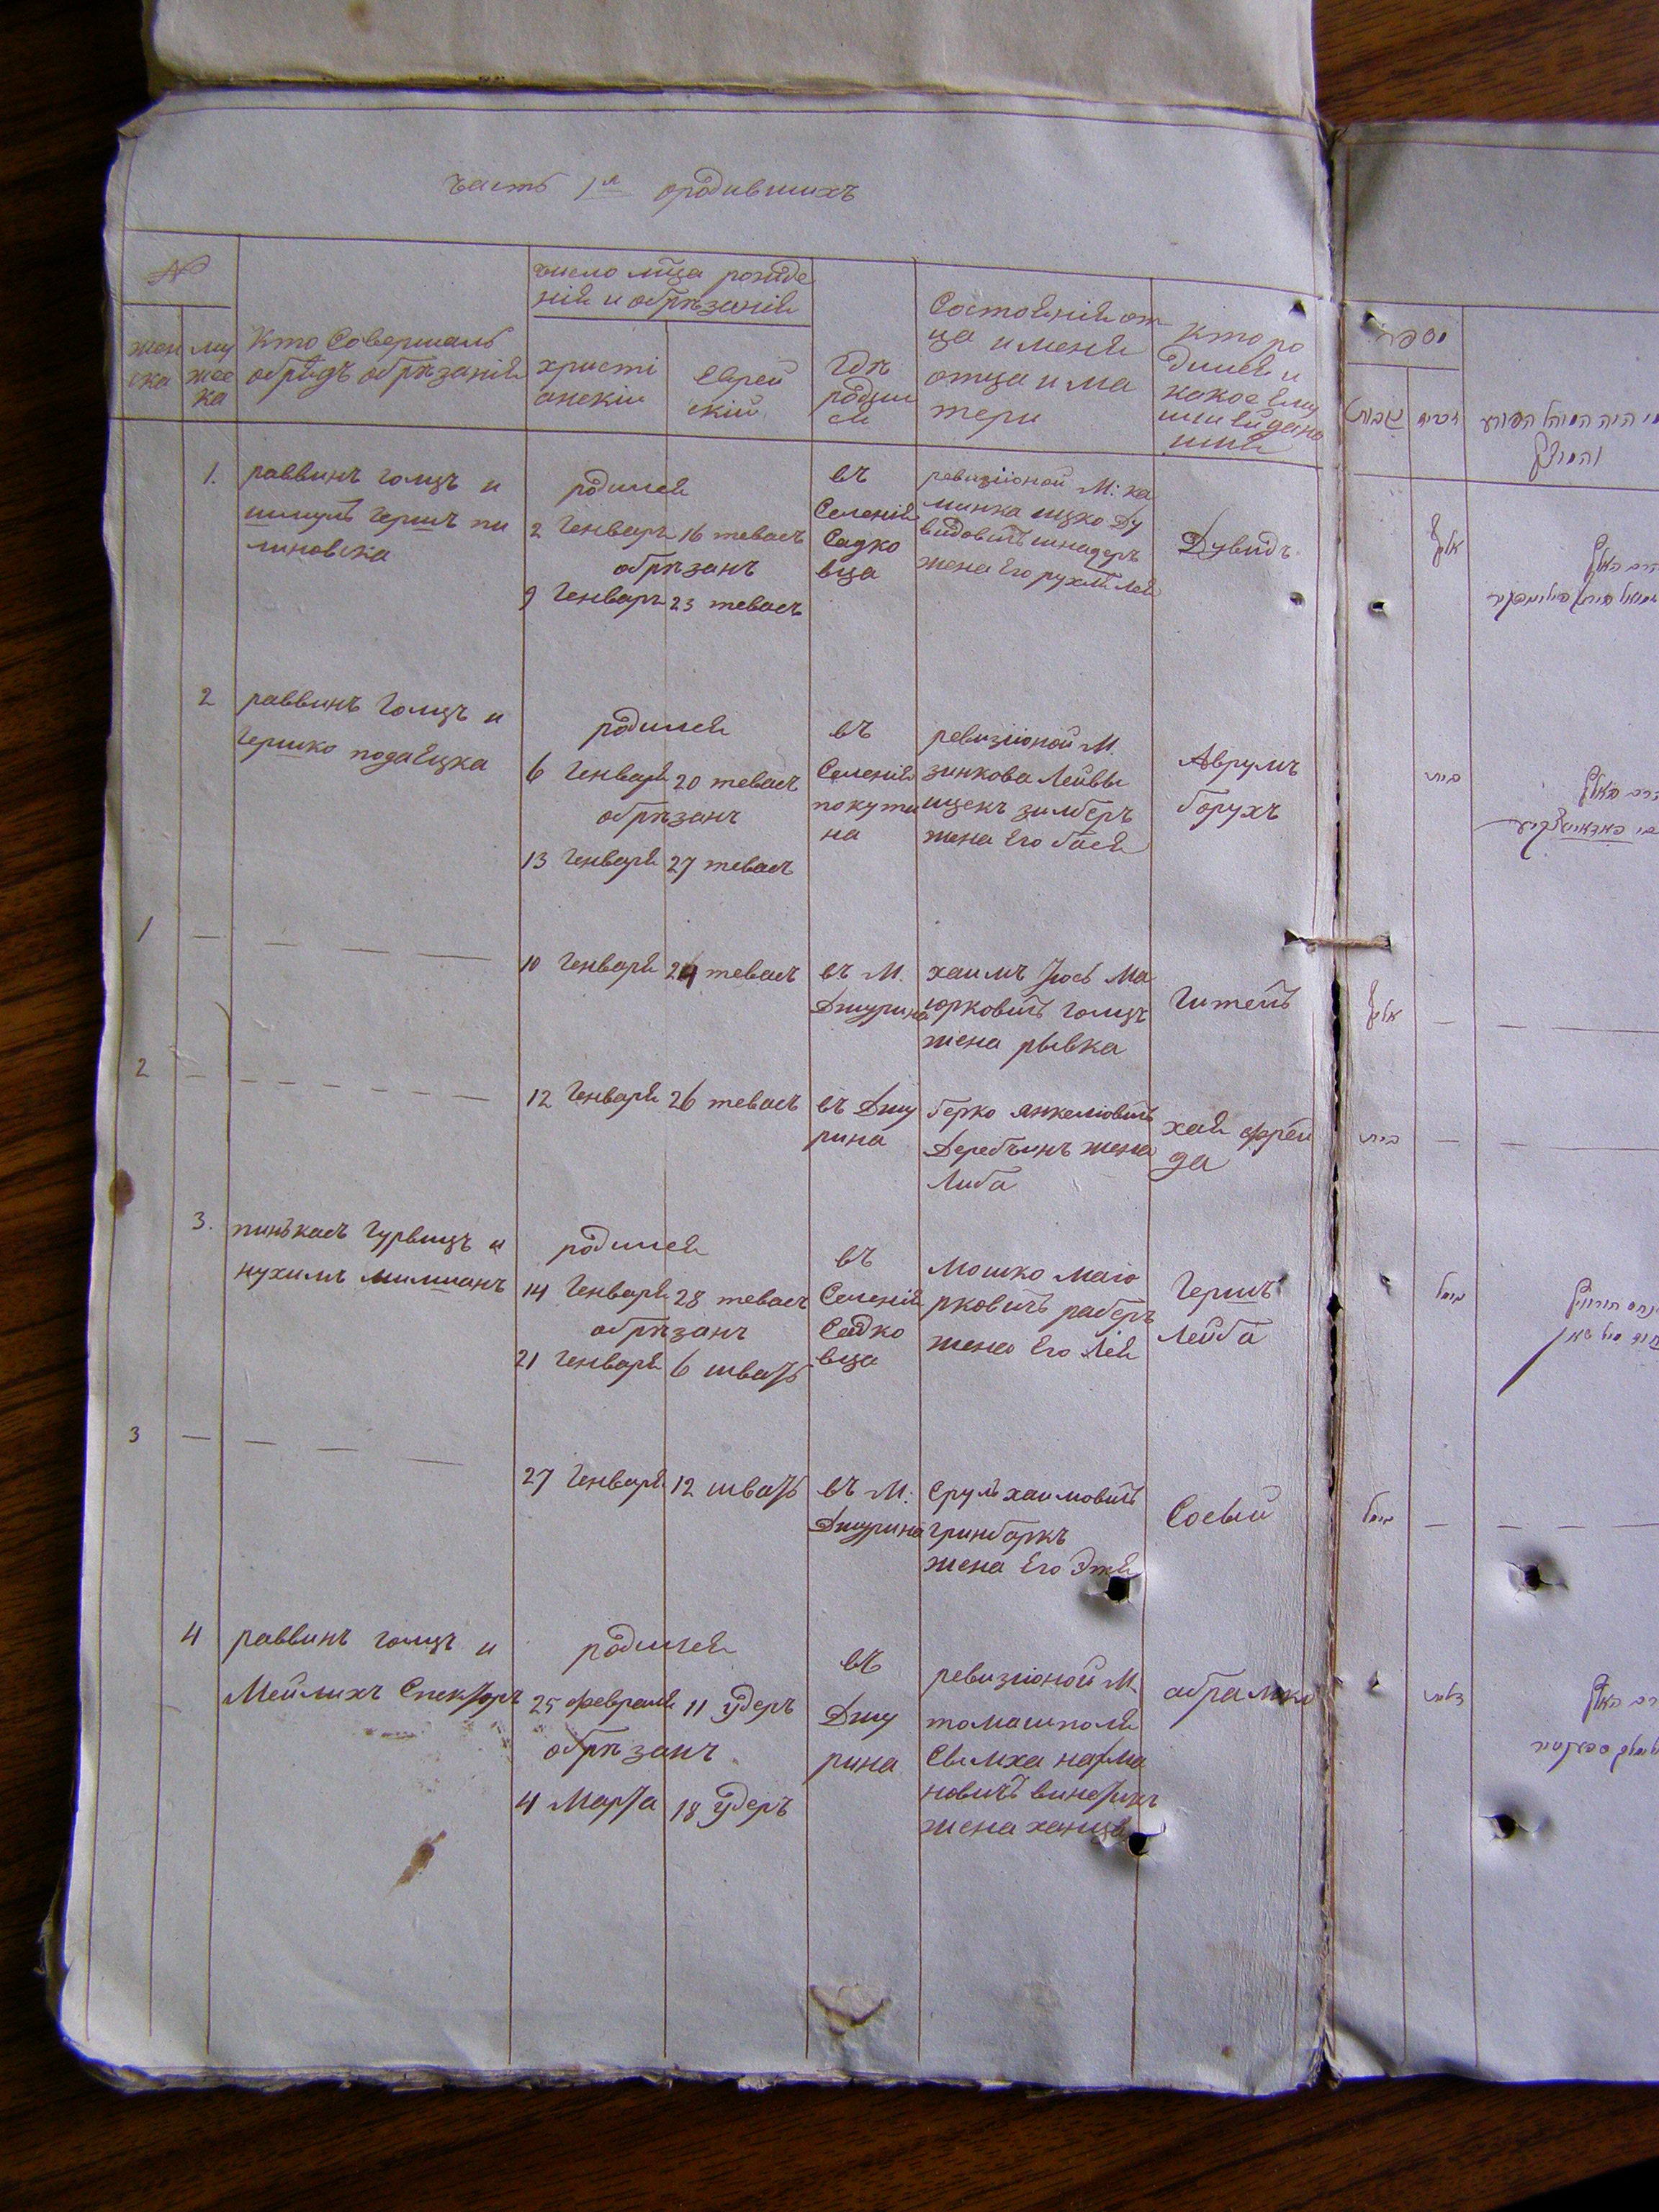 часть 1я ородившихъ
№
жен
ска
му
жес
ка
Кто Совершалъ
обрядъ обрѣзанія
число мца рожде
нія и обрѣзанія
христі
анскiи
Еврей
скій
Гдѣ
родил
ся
Состоянія от
ца и меня
отца и ма
тери
Кто ро
дился и
какое Ему
или Ей дано
имя
1. раввинъ голцъ и
шмуль Гершъ пи
линовска
родился
2 Генваръ 16 тевасъ
обрѣзанъ
9 Генваръ 23 тевасъ
въ
Селенія
Садко
вца
ревизіоной М: ка
минка ицко Ду
видовичъ шнадеръ
жена Его рухля лея
Дувидъ
2 раввинъ голцъ и
Гершко подаецка
родился
6 Генваря 20 тевасъ
обрѣзанъ
13 Генваря 27 тевасъ
въ
Селенія
покути
на
ревизіоной М.
зинкова Лейвы
ицекъ зилберъ
жена Его бася
Аврумъ
борухъ
1 10 Генваря 24 тевасъ
въ М.
Джурина
хаимъ Иось Ма
юрковичъ голцъ
жена рывка
Гитель
2 12 Генваря 26 тевасъ
въ Джу
рина
берко янкелювичъ
Деребчинъ жена
Либа
хая фрей
да
3. пинькасъ Гурвицъ и
нухимъ милманъ
родился
14 Генваря 28 тевасъ
обрѣзанъ
21 Генваря 6 шватъ
въ
Селенія
Садко
вца
Мошко маіо
рковичъ раберъ
жена Его Лея
Гершъ
Лейба
3 27 Генваря 12 шватъ
въ М:
Джурина
Сруль хаимовичъ
гринборкъ
жена Его Этя
Собый
4 раввинъ голцъ и
Мейлихъ Спекторъ
родился
25 февраля 11 удеръ
обрѣзанъ
4 Марта 18 удеръ
въ
Джу
рина
ревизіоной М.
томашполя
Свилиха натма
новичъ
жена ханця
абрамко
מספר
נקבות
זכרים
מי היה המוהל הפורע
והמוצץ
אלף
הרב האלץ
בית
הרב האלץ
אלף
בית
גימל
גימל
דלת
הרב האלץ